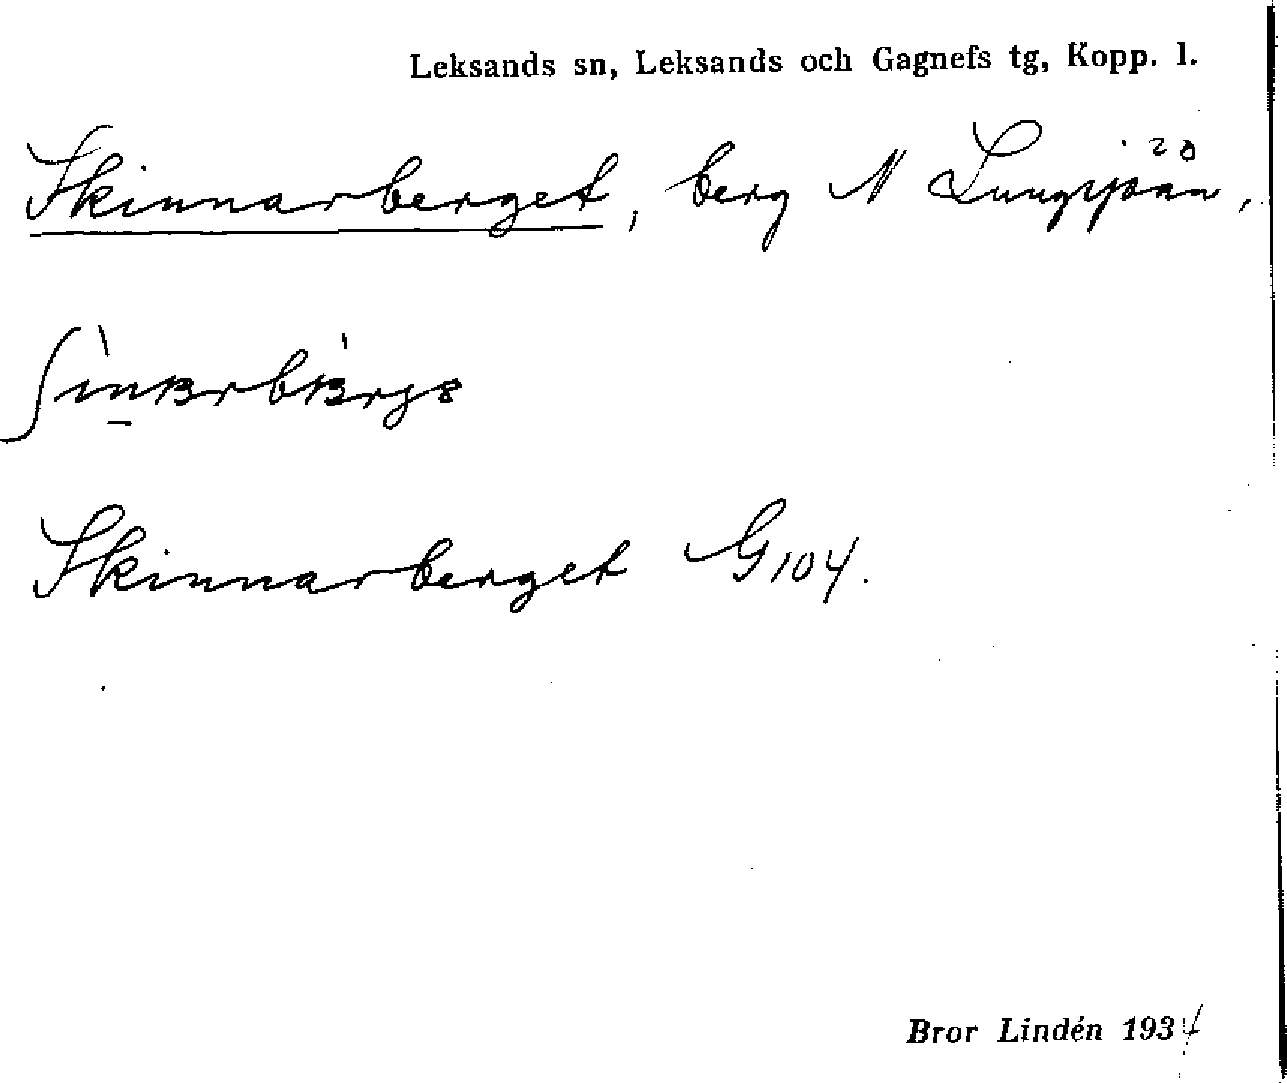 Leksands sn, Leksands och Gagnefs tg, Kopp. l.
Skinnarberget, berg N Lungsjöån,
Skinnarberget G104.
Bror Lindén 1934